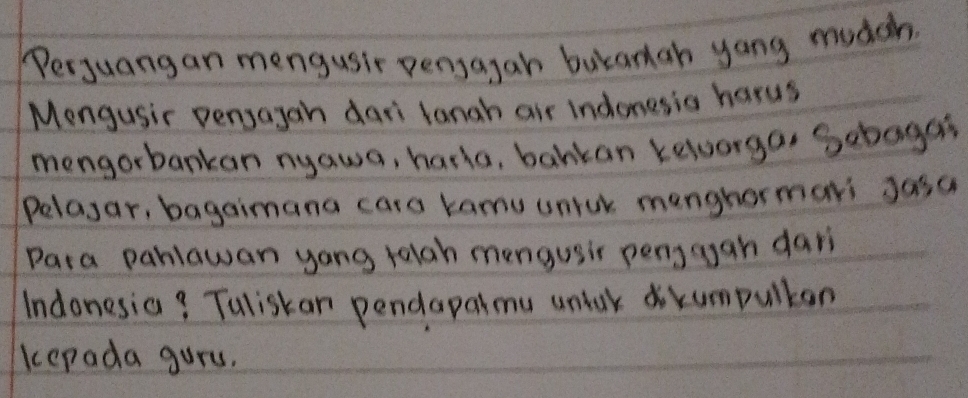 Perjuangan mengusir penjajah bukanlah yang mudah.
Mengusir penjajah dari tanah air Indonesia harus
mengorbankan nyawa, harta, bahkan keluarga. Sebagai
pelajar, bagaimana cara kamu untuk menghormati jasa
para pahlawan yang telah mengusir penjajah dari
Indonesia? Tuliskan pendapatmu untuk dikumpulkan
kepada guru.